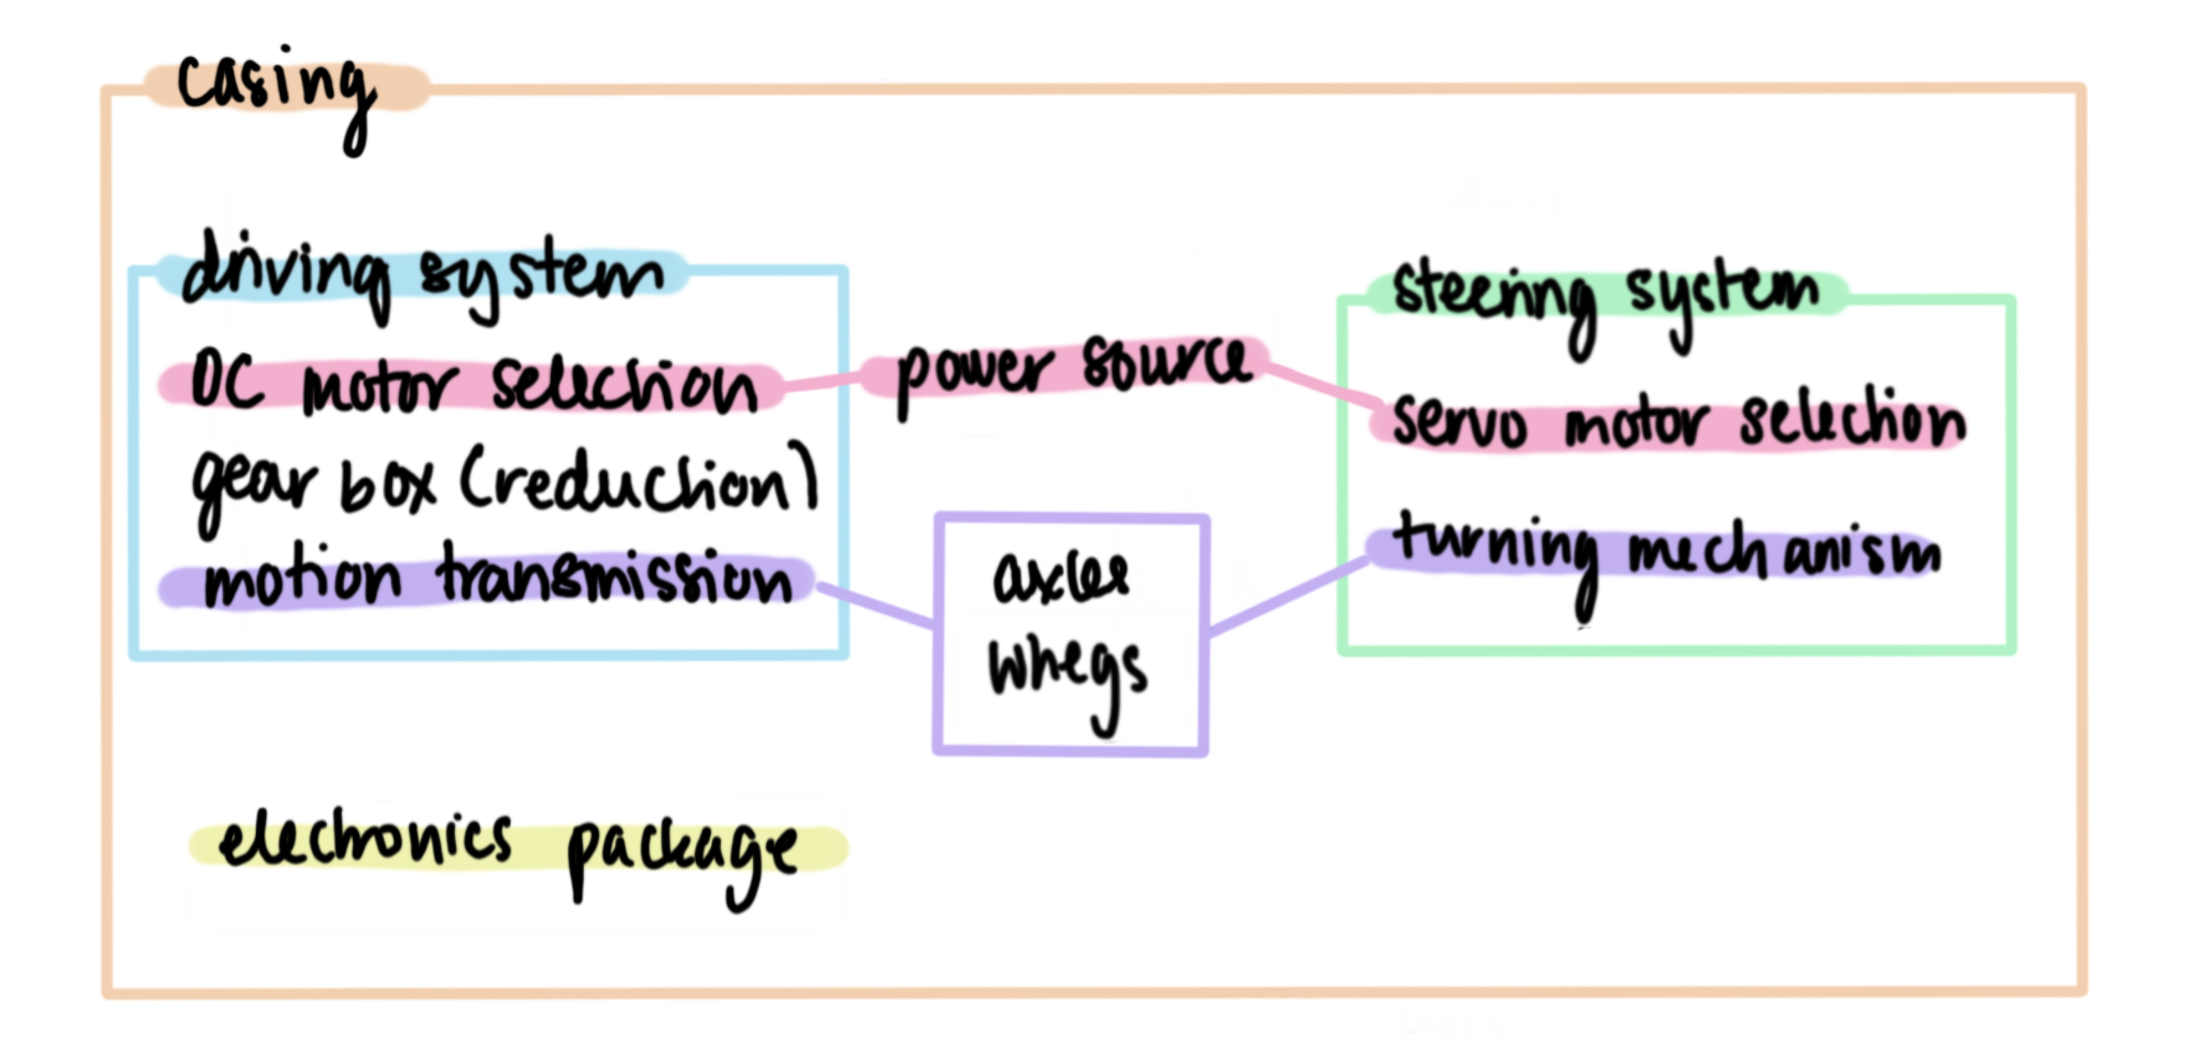 casing
driving system
DC motor selection
gear box (reduction)
motion transmission
power source
axles
whegs
steering system
servo motor selection
turning mechanism
electronics package